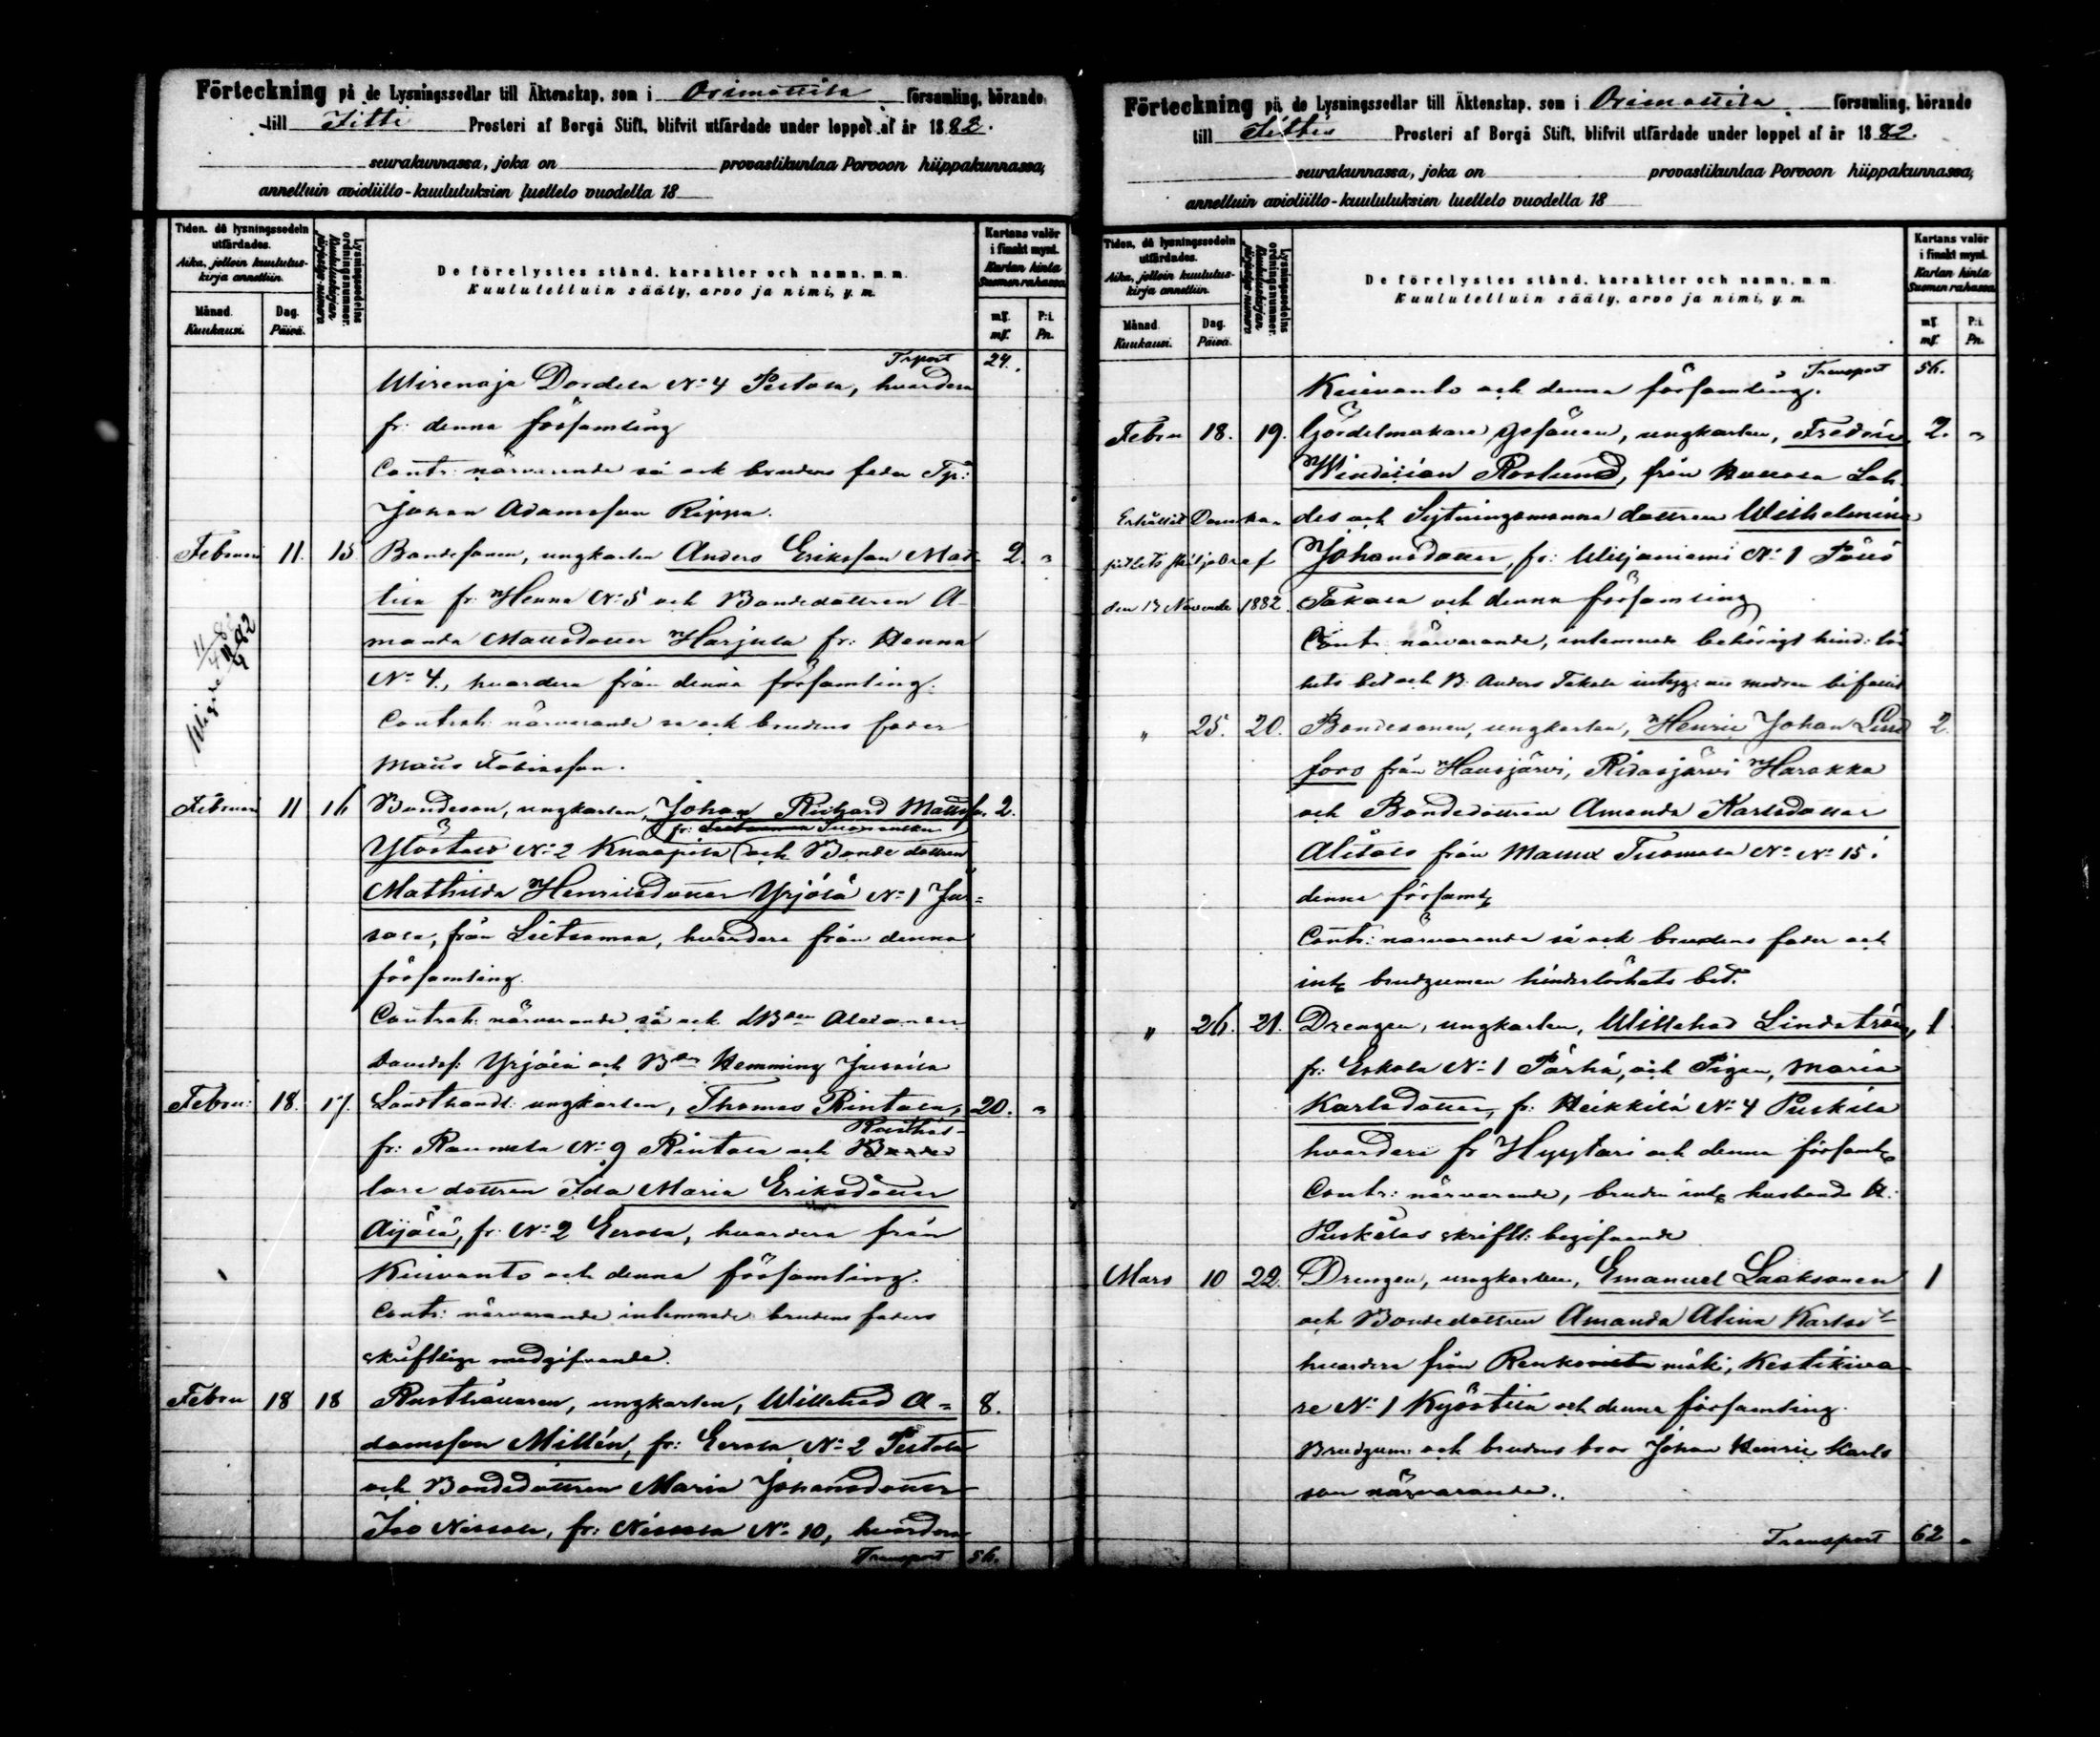 Förteckning på de Lysningssedlar till Äktenskap, som i Orimattila församling, hörande
till Iitti Prosteri af Borgå Stift, blifvit utfärdade under loppet af år 1882.
seurakunnassa, joka on provastikuntaa Porvoon hiippakunnassa,
annettuin avioliitto-kuulutuksien luettelo vuodelta 18
Tiden, då lysningssedeln utfärdades.
Aika, jolloin kuulutuskirja annettiin.
Månad. Kuukausi.
Dag. Päivä.
Lysningssedelns ordningsnummer.
Kuulutuskirjan järjestys-numero
De förelystes stånd, karakter och namn, m. m.
Kuulutelluin sääty, arvo ja nimi, y. m.
Kartans valör i finskt mynt.
Kartan hinta Suomen rahassa
mf. mf.
P:i. Pn.
Trport 24.
Wirenoja Dordela No 4 Pertola, hvardera
fr: denna församling
Contr: närvarande så ock brudens fader
Johan Adamsson Rippa.
Februari 11. 15 Bondesonen, ungkarlen Anders Eriksson Mat- 2. "
tila fr: Henna No 5 och Bondedottren A-
manda Mattsdotter Harjula fr: Henna
No 4., hvardera från denna församling.
Contrah: närvarande så ock brudens fader
Matts Tobiasson.
Februari 11 16 Bondeson, ungkarlen, Johan Richard Mattss: 2.
Ylöstalo No 2 Knaapila och Bonde dottren
Mathilda Henriksdotter Yrjölä No 1 Jus-
sola, från Leitsamaa, hvardera från denna
församling.
Contrah: närvarande så ock Alexander
Davidsf: Yrjölä och Bden Hemming Jussila
Febru: 18. 17. Landthandl: ungkarlen, Thomas Rintala, 20. "
Rusthål-
fr: No 9 Rintala och
lare dottren Ida Maria Eriksdotter
Äijälä, fr: No 2 Erola, hvardera från
Kuivanto och denna församling.
Contr: närvarande inlemnade brudens faders
skriftliga medgifvande.
Febru 18 18 Rusthållaren, ungkarlen, Willehad A= 8.
damsson Millén, fr: Erola No 2 Pertola
och Bondedottren Maria Johansdotter
Iso Nissola, fr: Nissola No 10, hvardera
Transport 56.
Förteckning på de Lysningssedlar till Äktenskap, som i Orimattila församling, hörande
till Iittis Prosteri af Borgå Stift, blifvit utfärdade under loppet af år 1882.
seurakunnassa, joka on provastikuntaa Porvoon hiippakunnassa,
annettuin avioliitto-kuulutuksien luettelo vuodelta 18
Tiden, då lysningssedeln utfärdades.
Aika, jolloin kuulutuskirja annettiin.
Månad. Kuukausi.
Dag. Päivä.
Lysningssedelns ordningsnummer.
Kuulutuskirjan järjestys-numero
De förelystes stånd, karakter och namn, m. m.
Kuulutelluin sääty, arvo ja nimi, y. m.
Kartans valör i finskt mynt.
Kartan hinta Suomen rahassa
mf. mf.
P:i. Pn.
Transport 56.
Kuivanto och denna församling.
Febru 18. 19. Gördelmakare gesällen, ungkarlen, Fredric 2. "
Roslund, från Hollola Lah
Erhållit Domka- des och Sytningsmanna dottren Wilhelmina
pitlets skiljobref Johansdotter, fr: Wiljaniemi No 1
den 13 Novembe 1882. Takala och denna församling
Contr närvarande, inlemnade behörigt hind: lös
hets bet och B: Anders Takala intyg: om modren bifallit
" 25. 20. Bondesonen, ungkarlen, Henric Johan Lind 2.
fors från Hausjärvi, Ridasjärvi Harakka
och Bondedottren Amanda Karlsdotter
Alitalo från Tuomala No 15 i
denna församlg
Contr: närvarande så ock brudens fader och
intg brudgummen hinderlöshets bet.
" 26. 21. Drengen, ungkarlen, Willehad Lindström, 1
fr: Eskola No 1 Pärhä, och Pigan, Maria
Karlsdotter, fr: Heikkilä No 4 Puskila
hvardera fr Hyytari och denna församlg
Contr: närvarande, bruden intg husbonde A:
Puskilas skriftl: begifvande
Mars 10 22. Drengen, ungkarlen, Emanuel Laaksonen 1
och Bondedottren Amanda Alina Karlsdr
hvardera från Renkomäki, Kestikiva-
re No 1 Kyöstilä och denna församling.
Brudgum: och brudens bror Johan Henric Karls
son närvarande.
Transport 62 "